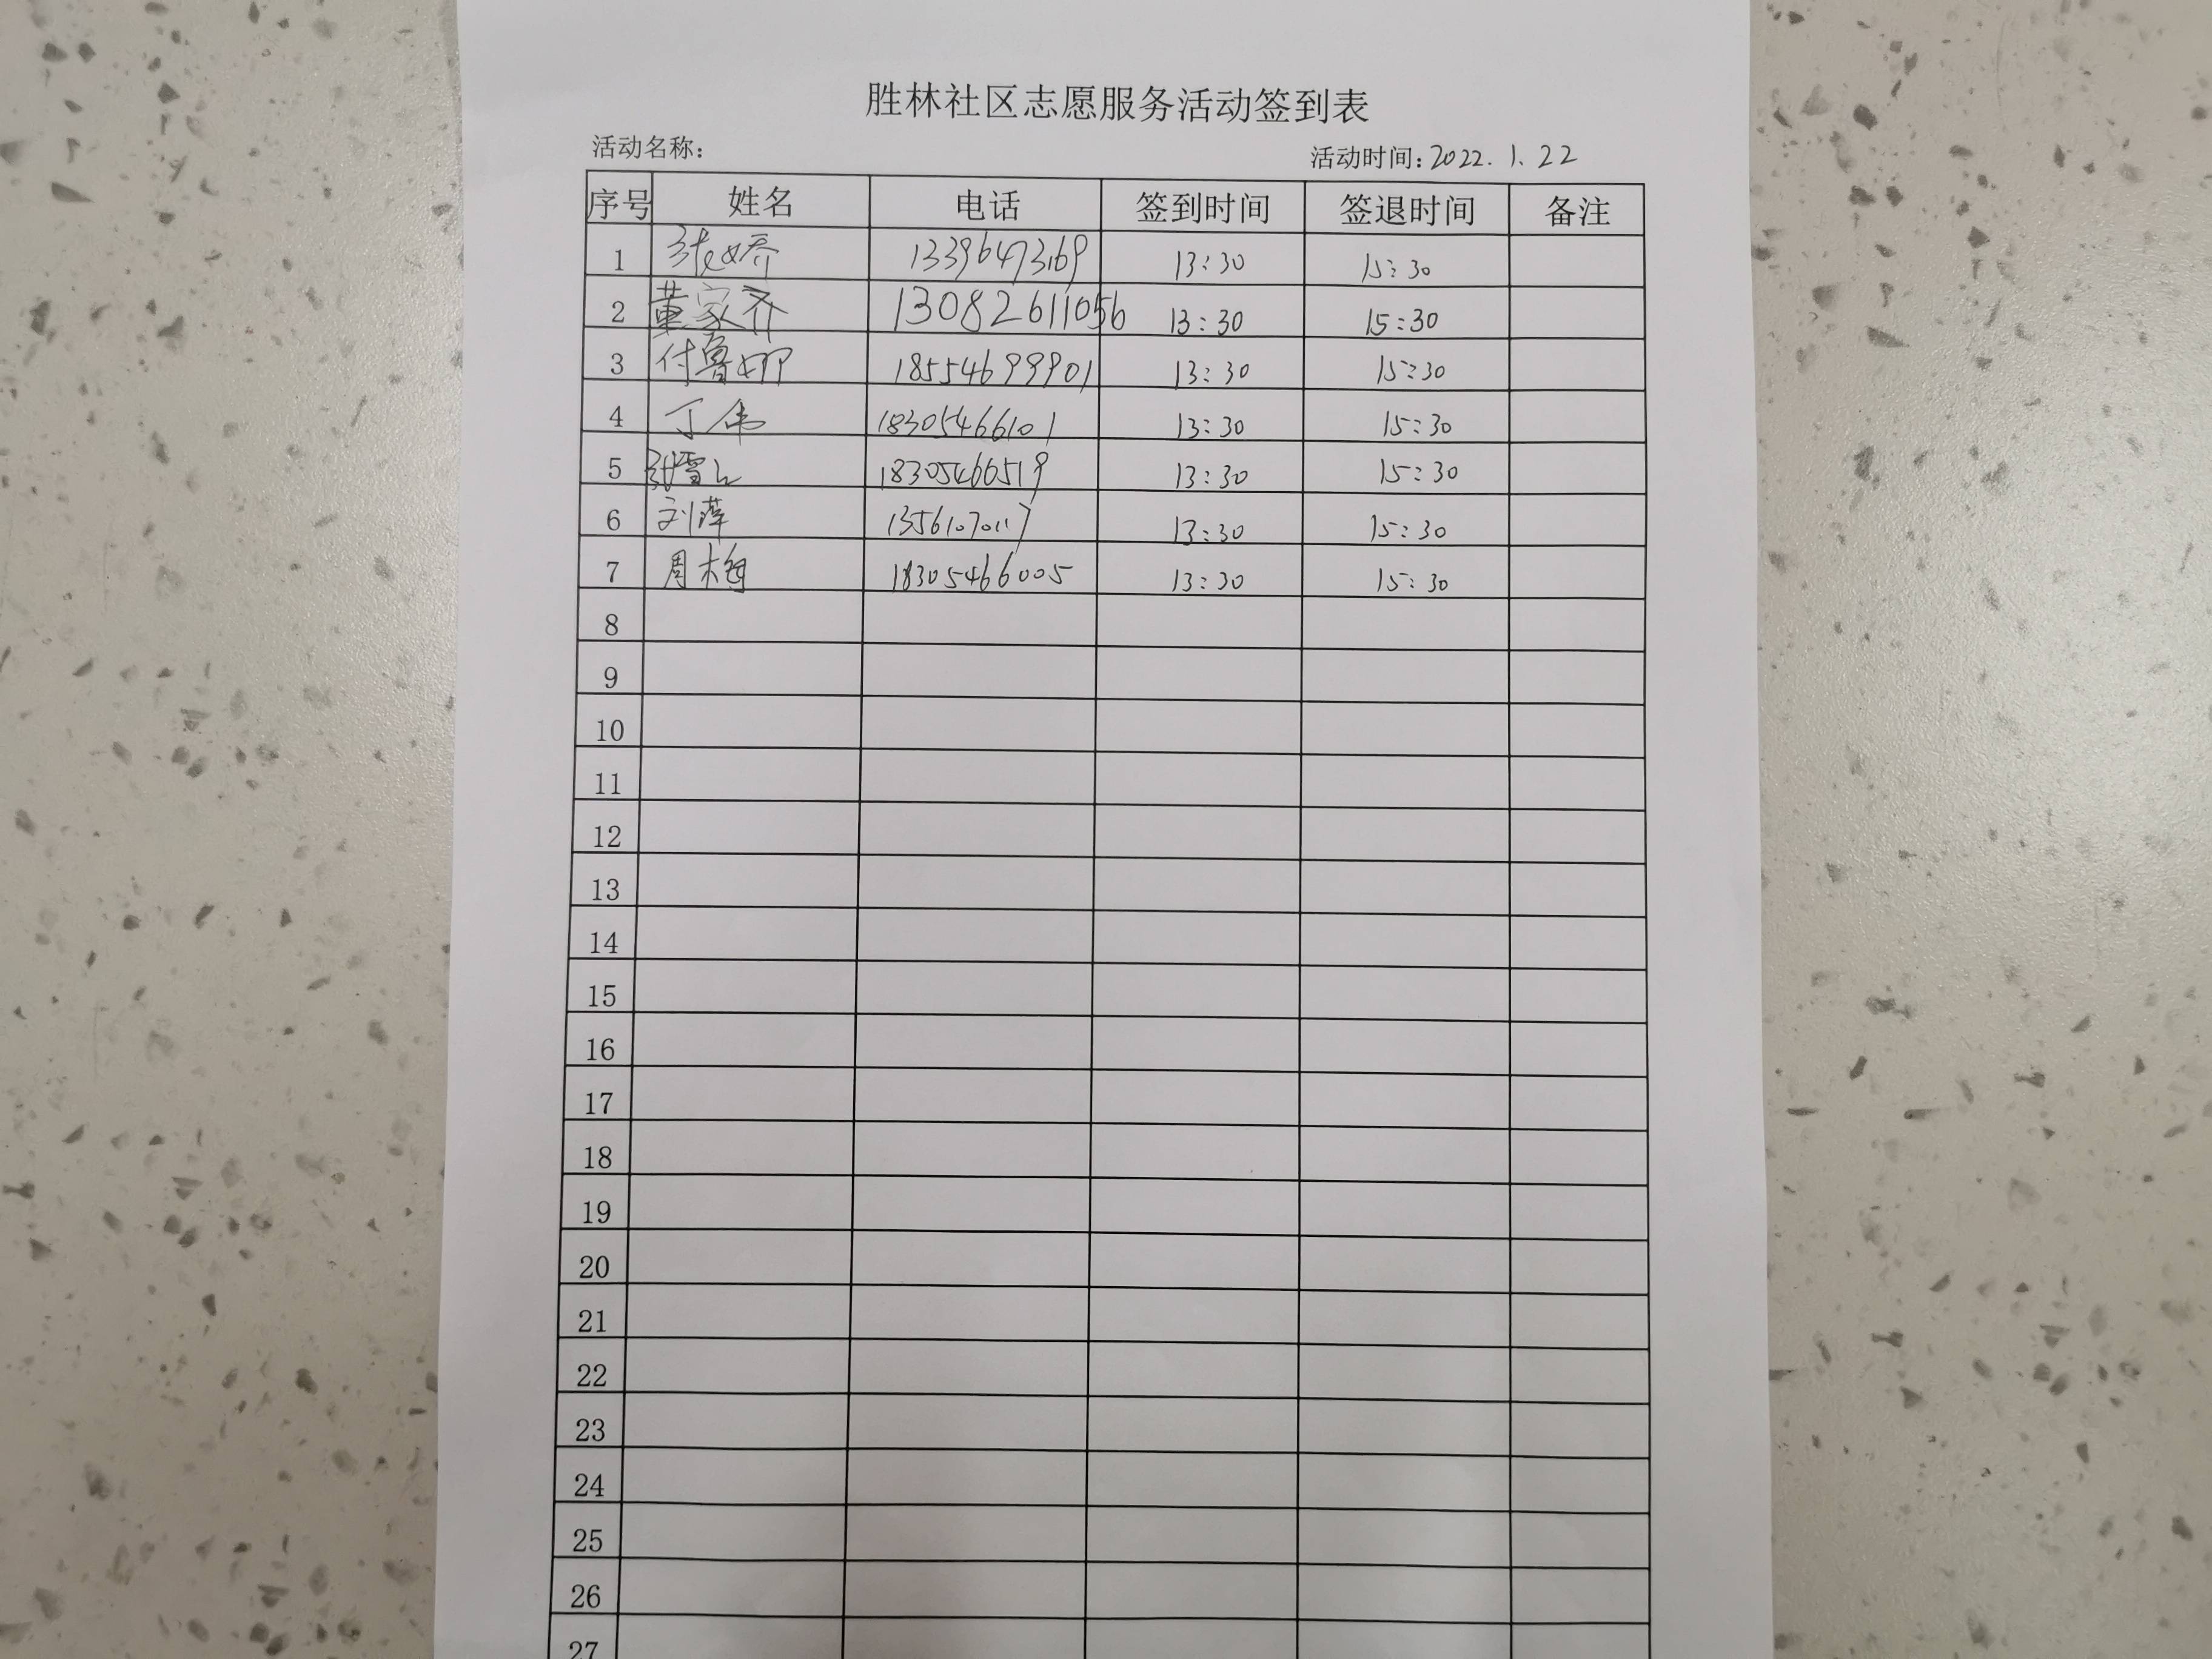 胜林社区志愿服务活动签到表
活动名称: 活动时间:2022.1.22
序号 姓名 电话 签到时间 签退时间 备注
1 张娇 13396473169 13:30 15:30
2 董家齐 13082611056 13:30 15:30
3 付鲁娜 18554699901 13:30 15:30
4 丁伟 18305466101 13:30 15:30
5 张雪 18305466519 13:30 15:30
6 刘萍 13561070117 13:30 15:30
7 周梅 18305466005 13:30 15:30
8
9
10
11
12
13
14
15
16
17
18
19
20
21
22
23
24
25
26
27